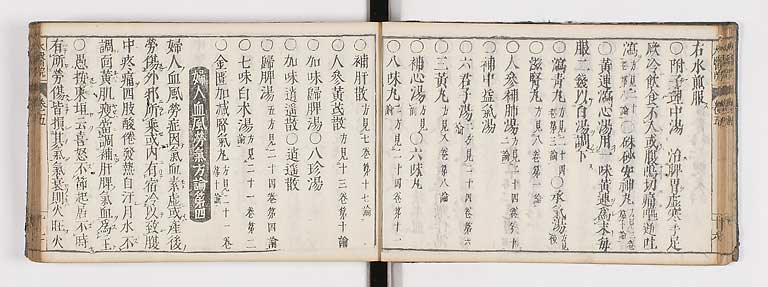 右水煎服
○附子理中湯 治脾胃虚寒手足
厥冷飲食不入或腹心切痛嘔逆吐
瀉 ○硃砂安神丸
○黄連瀉心湯用一味黄連爲末毎
服二幾以白湯調下
○瀉青丸方見二十四 ○承氣湯方見
○滋腎丸方見八卷第一論
○人參補肺湯方見
○補中益氣湯
○六君子湯方見二十四卷第六
○三黄丸方見八卷第八論
○補心湯 ○六味丸
○八味丸方見二十四卷第十一
○補肝散方見七卷第十七論
○人參黄芪散方見十三卷第十論
○加味歸脾湯○八珍湯
○加味逍遥散○逍遥散
○歸脾湯方見二十四卷第四論
○七味白朮湯方見二十一卷第二
○金匱加減腎氣丸方見二十一卷第十論
婦人血風勞氣方論第四
婦人血風勞症因氣血素虚或産後
勞傷外邪所乘或内有宿冷以致腹
中疼痛四肢酸倦發熱自汗月水不
調面黄肌瘦當調補肝脾氣血爲主
○愚按東垣云喜怒不節起居不時
有所勞傷皆損其氣氣衰則火旺火